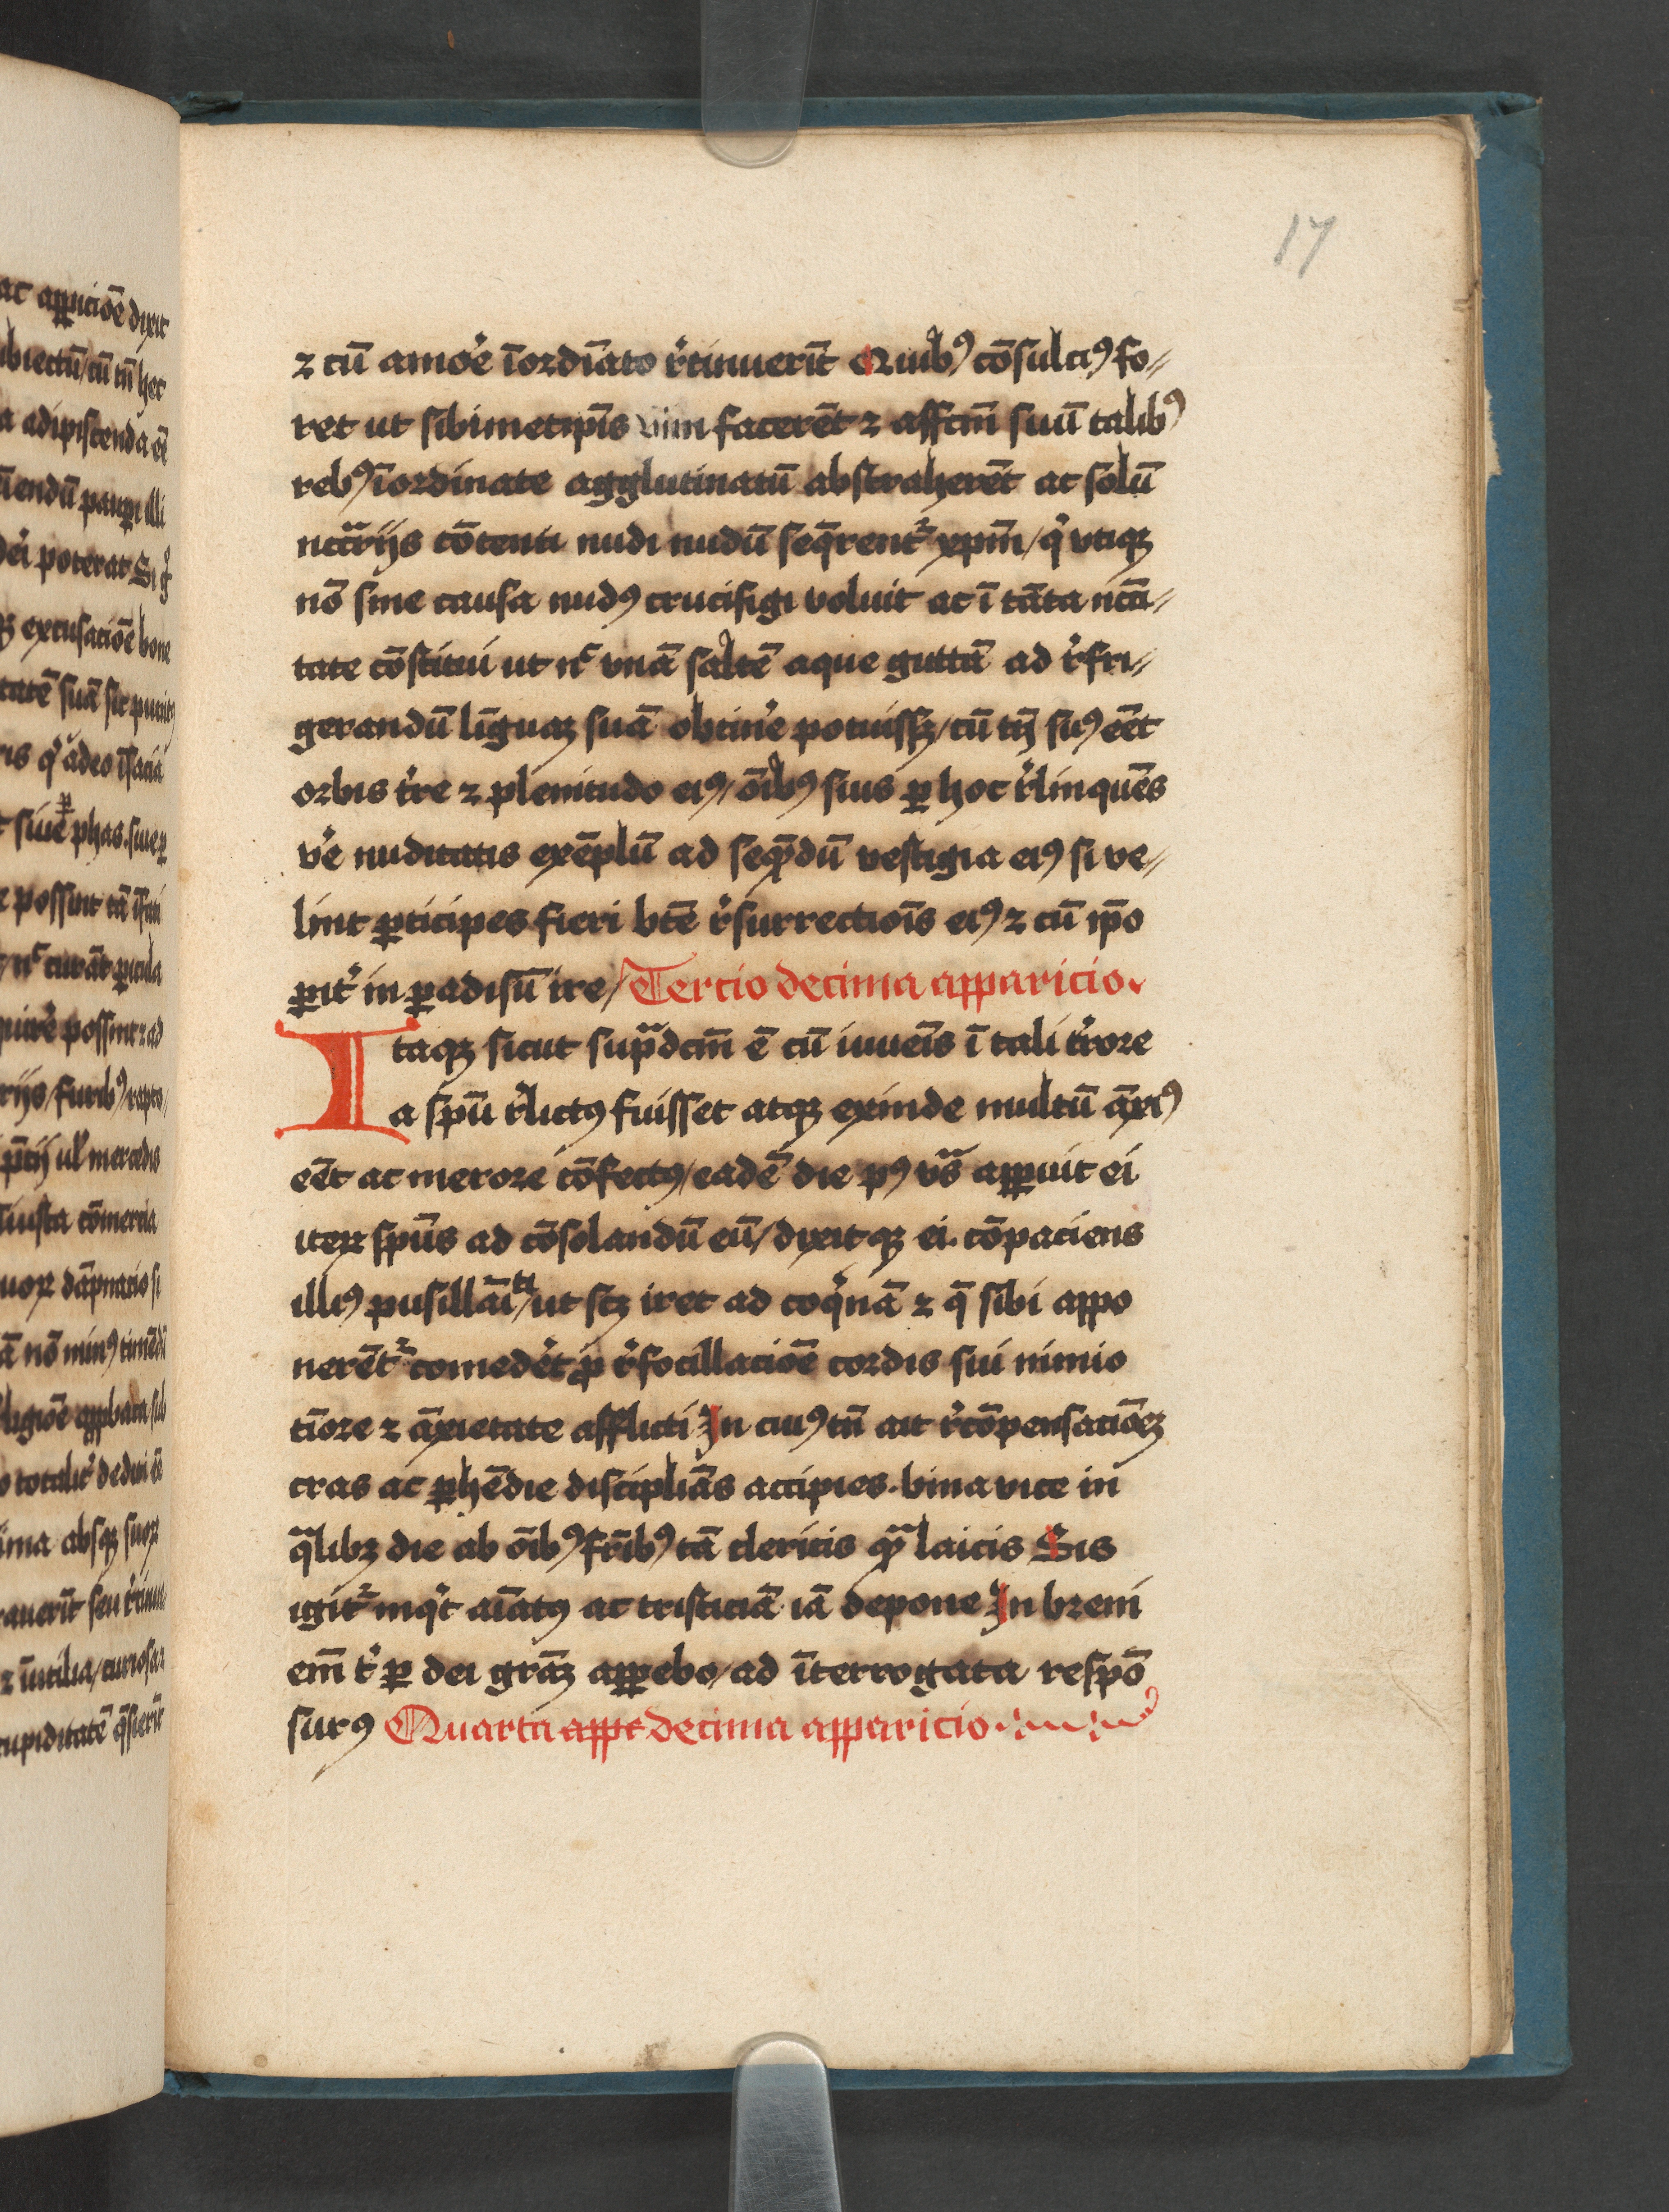 17
⁊ cū amo᷑e īordīato r᷑tinuerīt Quibꝰ cōsulciꝰ fo⸗
ret ut sibimetip̄is vim facerēt ⁊ affc̄m suū talibꝰ
rebꝰ īordinate agglutinatū abstraherēt ac solū
nc̄c̄rijs cōtenti nudi nudū seq̄rent᷑ xpm̄/ qͥ vtiqꝫ
nō sine causa nudꝰ crucifigi voluit ac ī tāta nc̄c̄i⸗
tate cōstitui ut nͨ vnā saltē aque guttā ad r᷑fri⸗
gerandū līguaꝫ suā obtine᷑ potuissꝫ/ cū tn̄ suꝰ eēt
orbis t᷑re ⁊ plenitudo eiꝰ/ oībꝰ suis ꝑ hoc r᷑linquēs
ve᷑ nuditatis exēplū ad seq̄ndū vestigia eiꝰ si ve⸗
lint ꝑticipes fieri btē r᷑surrectiois̄ eiꝰ ⁊ cū ip̄o
ꝑit᷑ in ꝑadisū ire/ Tercio decima apparicio.
Itaqꝫ sicut supᷓdcm̄ ē cū iuueīs ī tali t᷑rore
a spū r᷑lictꝰ fuisset atqꝫ exinde multū āxiꝰ
eēt ac merore cōfectꝰ/ eadē die pꝰ vs̄ apꝑuit ei
iteꝝ spūs ad cōsolandū eū/ dixitqꝫ ei. cōpaciens
illiꝰ pusillāītͣ/ ut scꝫ iret ad coqͥnā ⁊ q̄ sibi appo
nerēt᷑ comede᷑t ꝓ r᷑focillacioē cordis sui nimio
tiōre ⁊ āxietate afflicti In cuiꝰ tn̄ ait r᷑cōpensacioēꝫ
cras ac ꝑhēdie disciplīas accipies. bina vice in
qᷓlibꝫ die ab oībꝰ frībꝰ tā clericis qᷓ laicis Sis
igit᷑ inqͥt aīatꝰ ac tristiciā iā depone In breui
em̄ t᷑ ꝑ dei grāꝫ apꝑebo/ ad īterrogata respō
surꝰ Quarta appr decima apparicio